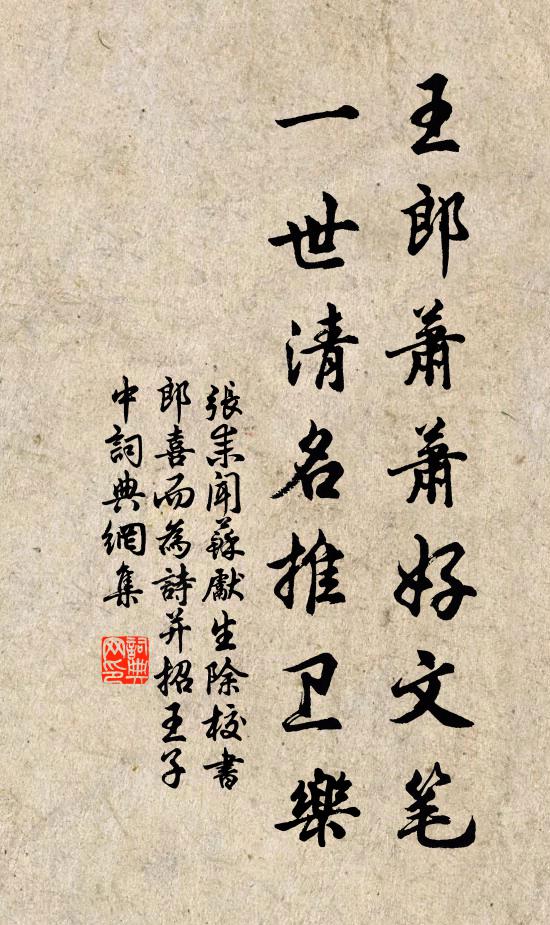 王郎蕭蕭好文笔
一世清名推卫樂
張耒聞蘇獻生除校書
郎喜而為詩并招王子
中詞典網集
詞典
网印